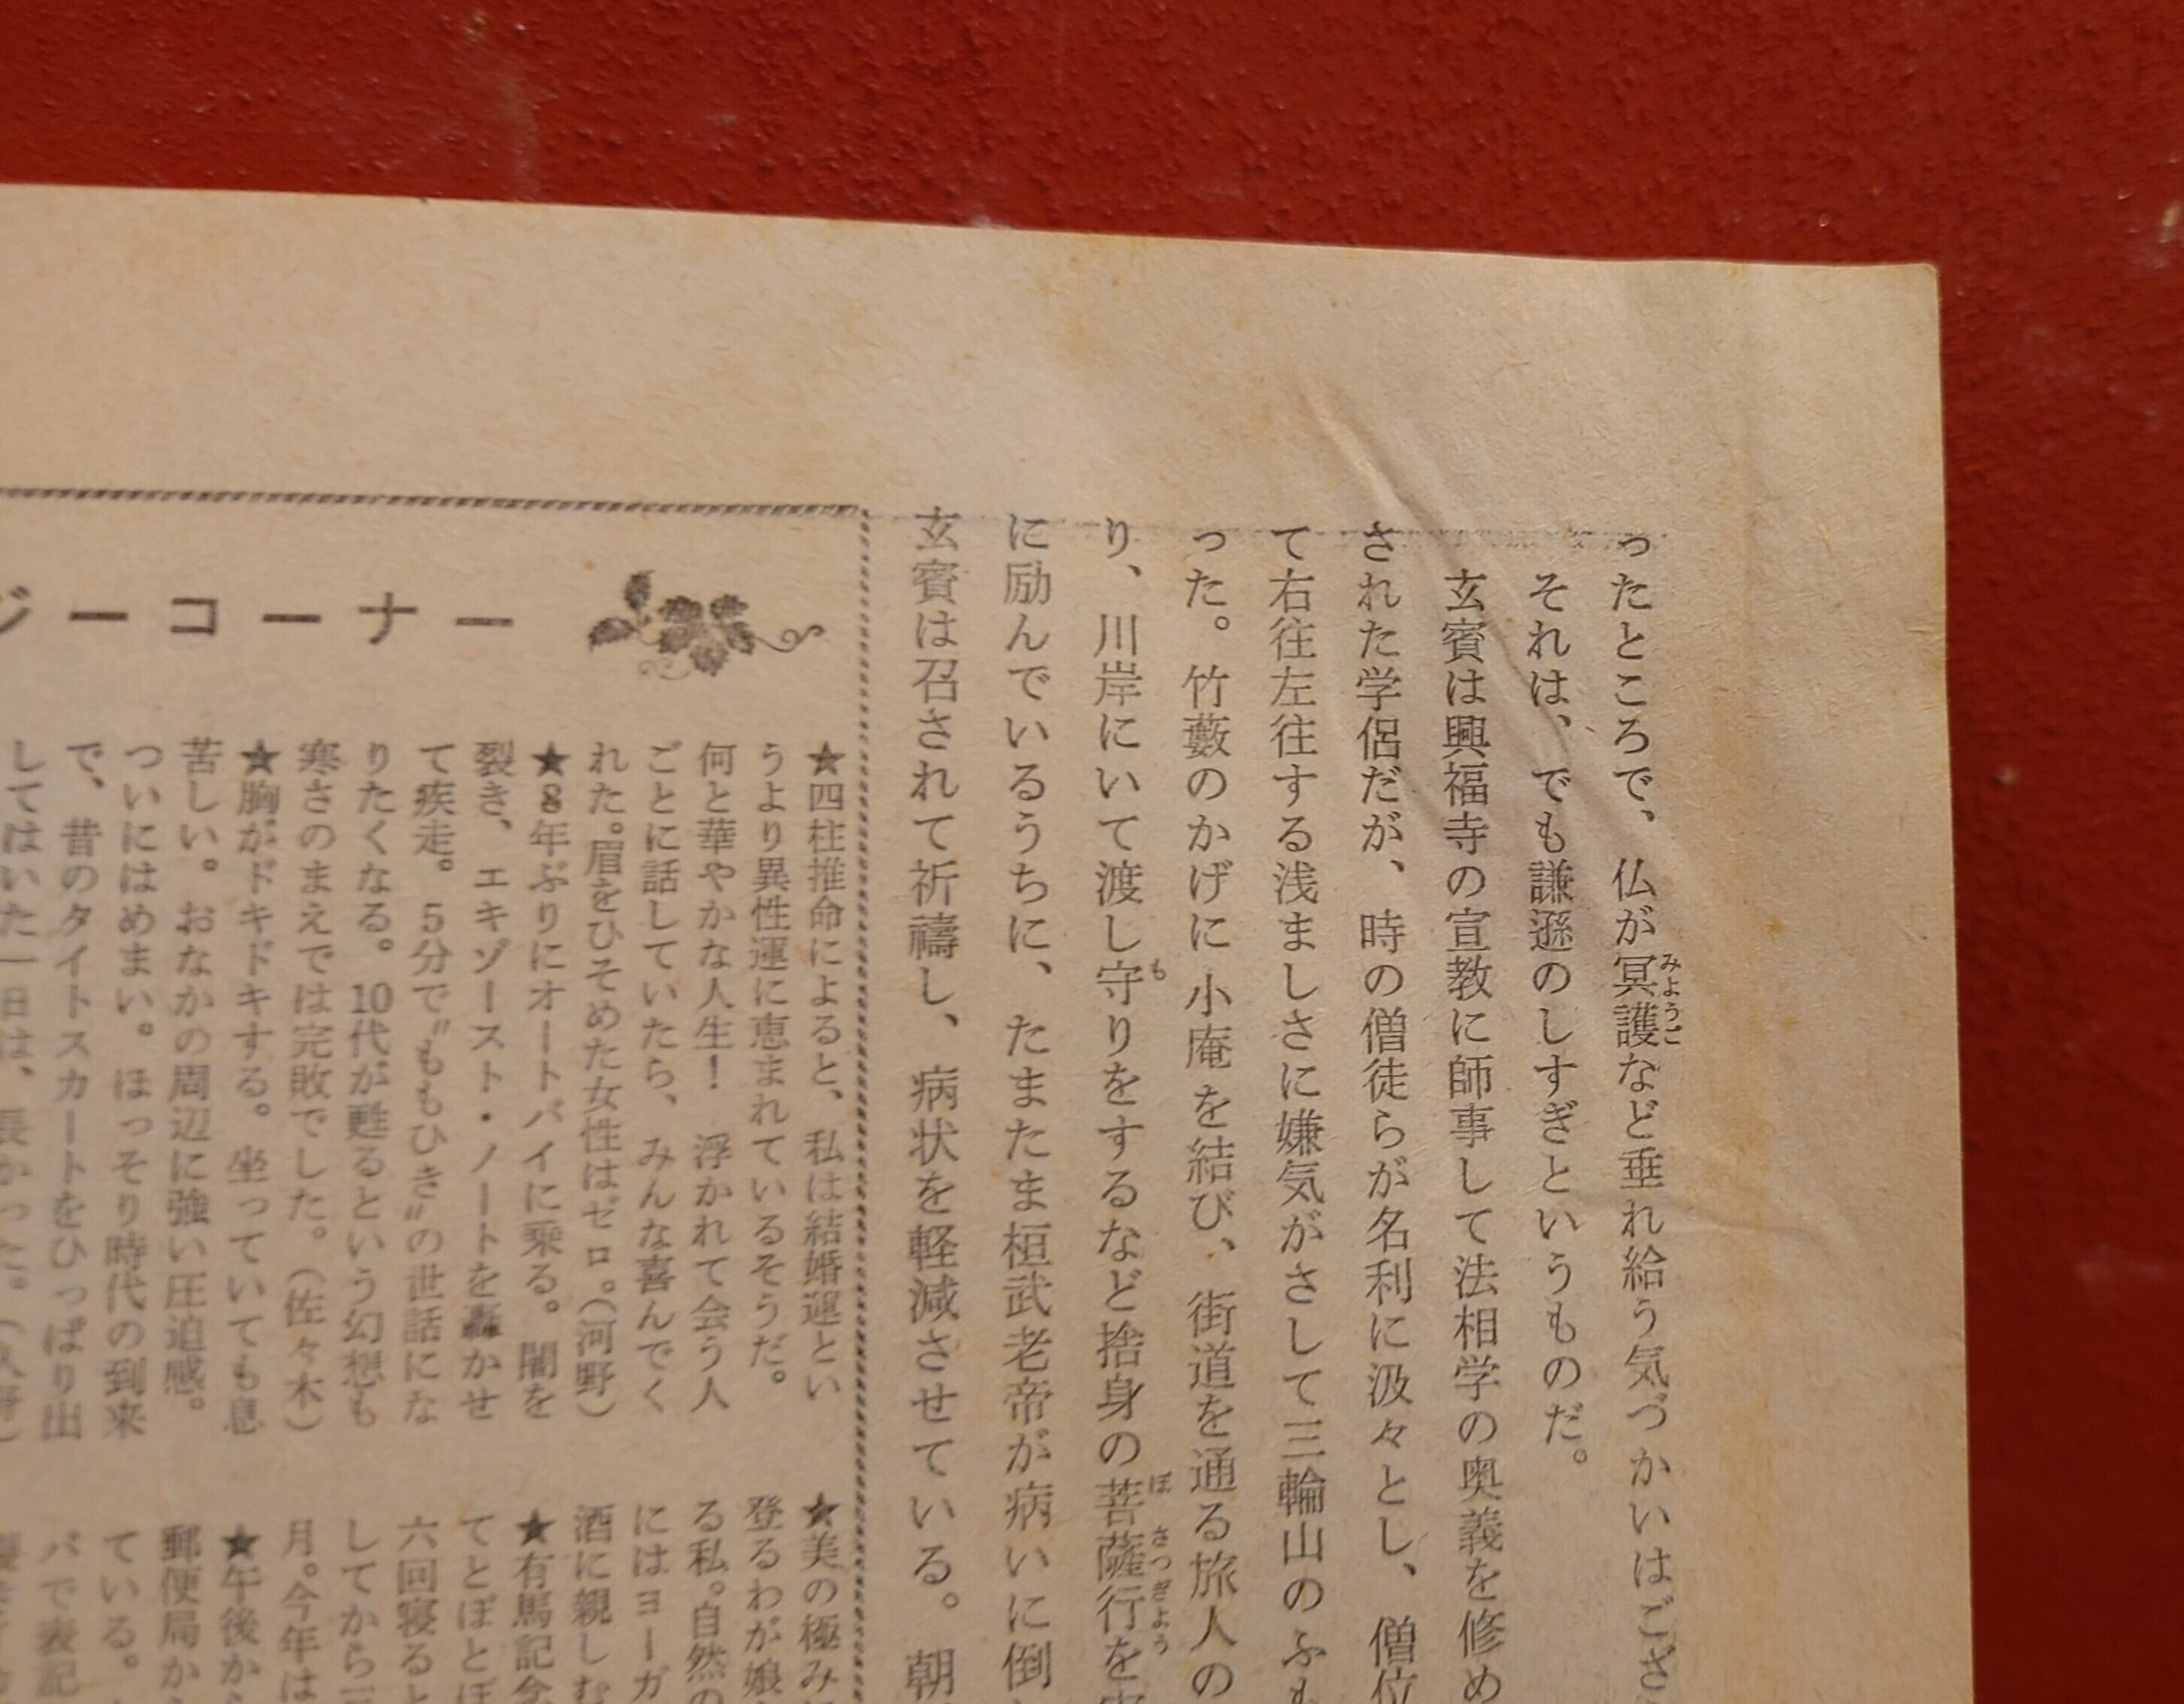 ったところで、仏が冥護など垂れ給う気づかいはござ
みようご
それは、でも謙遜のしすぎというものだ。
玄賓は興福寺の宣教に師事して法相学の奥義を修め
された学侶だが、時の僧徒らが名利に汲々とし、僧位
て右往左往する浅ましさに嫌気がさして三輪山のふも
った。竹藪のかげに小庵を結び、街道を通る旅人の
り、川岸にいて渡し守りをするなど捨身の菩薩行を
も
ぼさつぎよう
に励んでいるうちに、たまたま桓武老帝が病いに倒
玄賓は召されて祈禱し、病状を軽減させている。朝
ジーコーナー
★四柱推命によると、私は結婚運とい
うより異性運に恵まれているそうだ。
何と華やかな人生！　浮かれて会う人
ごとに話していたら、みんな喜んでく
れた。眉をひそめた女性はゼロ。（河野）
★8年ぶりにオートバイに乗る。闇を
裂き、エキゾースト・ノートを轟かせ
て疾走。5分で〝ももひき〟の世話にな
りたくなる。10代が甦るという幻想も
寒さのまえでは完敗でした。（佐々木）
★胸がドキドキする。坐っていても息
苦しい。おなかの周辺に強い圧迫感。
ついにはめまい。ほっそり時代の到来
で、昔のタイトスカートをひっぱり出
してはいた一日は、長かった。（
★美の極み
登るわが娘
る私。自然の
にはヨーガ
酒に親しむ
★有馬記念
てとぼとぼ
六回寝ると
してから
月。今年は
★午後から
郵便局か
ている。
バで表記